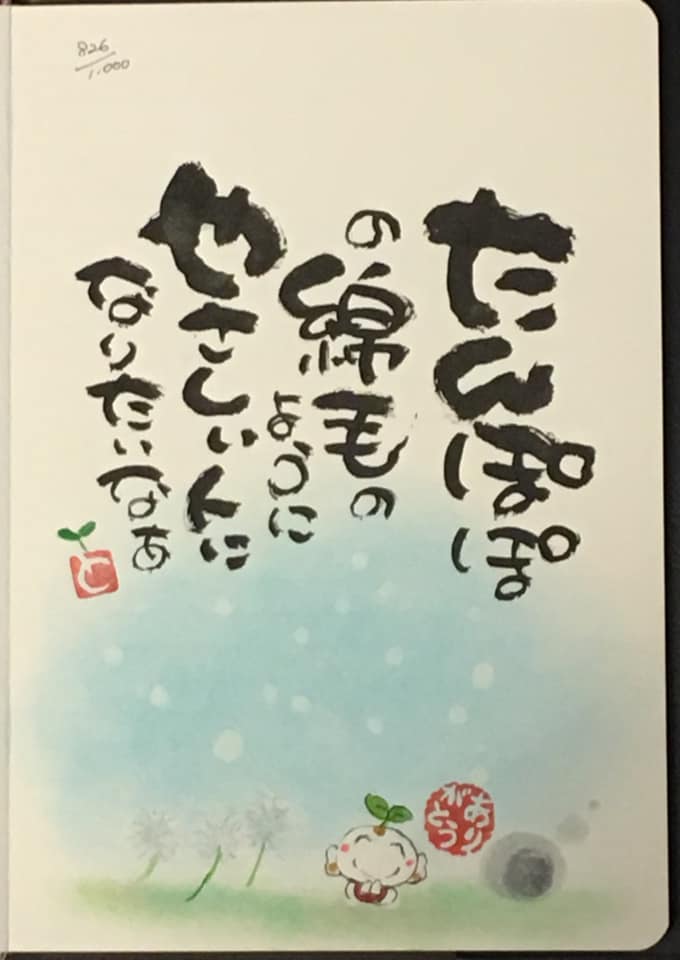 826/1,000
たんぽぽ
の綿毛の
ように
やさしい人に
なりたいなぁ
と
ありがとう